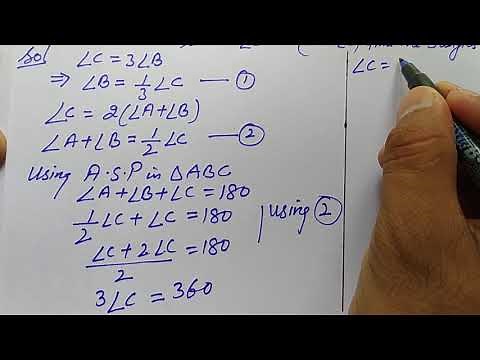 Sol
∠C = 3∠B
⇒ ∠B = 1/3 ∠C — ①
∠C = 2(∠A+∠B)
∠A+∠B = 1/2 ∠C — ②
Using A.S.P in △ABC
∠A+∠B+∠C = 180
1/2 ∠C + ∠C = 180 | using ②
(∠C + 2∠C)/2 = 180
3∠C = 360
∠C =